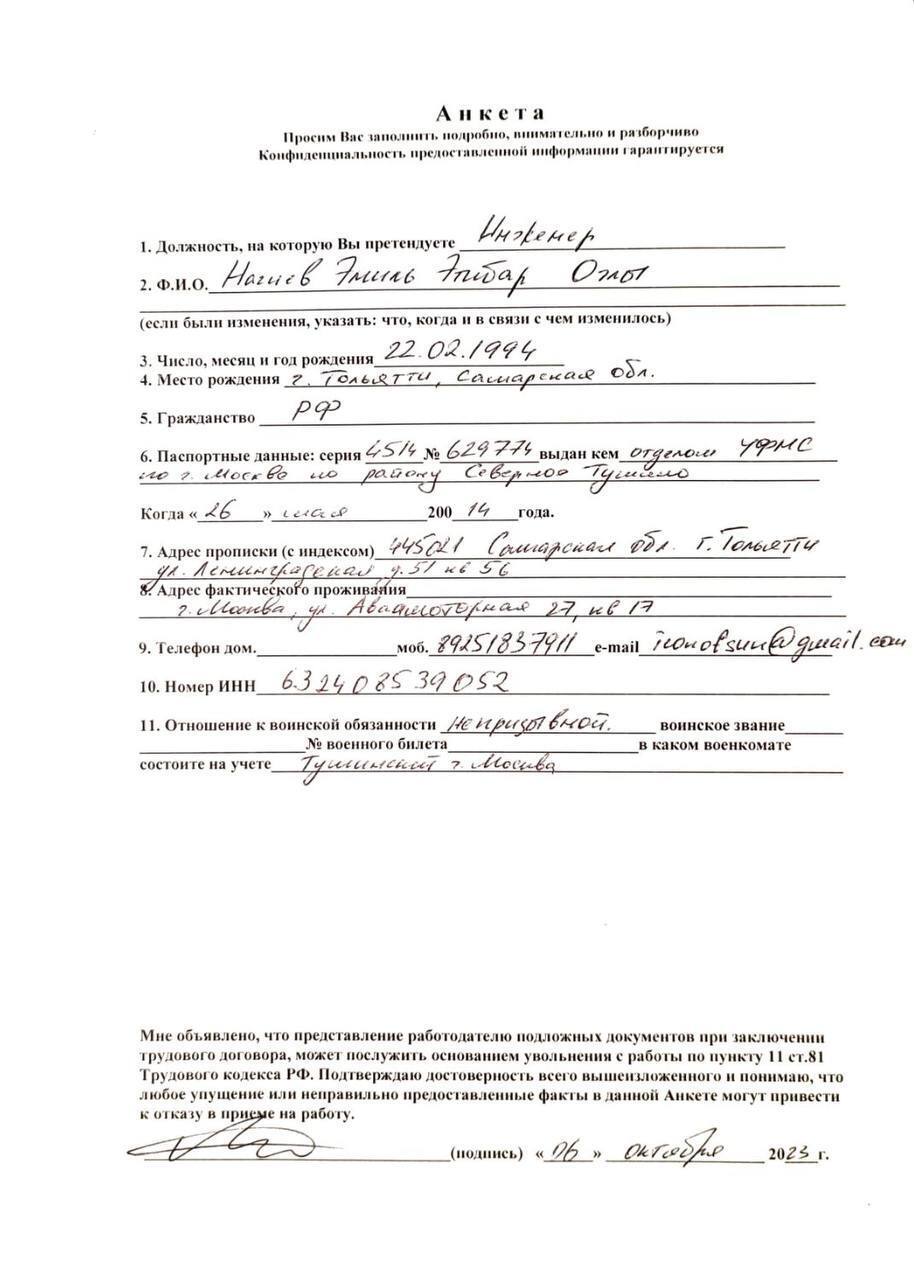 Анкета
Просим Вас заполнить подробно, внимательно и разборчиво
Конфиденциальность предоставленной информации гарантируется
1. Должность, на которую Вы претендуете Инженер
2. Ф.И.О. Нагиев Эмиль Эльбар Оглы
(если были изменения, указать: что, когда и в связи с чем изменилось)
3. Число, месяц и год рождения 22.02.1994
4. Место рождения г. Тольятти, Самарская обл.
5. Гражданство РФ
6. Паспортные данные: серия 4514 № 629774 выдан кем отделом УФМС
по г. Москве по району Северное Тушино
Когда « 26 » мая 200 14 года.
7. Адрес прописки (с индексом) 445021 Самарская обл. г. Тольятти
ул. Ленинградская д. 51 кв 56
8. Адрес фактического проживания
г. Москва, ул. Авиамоторная 27, кв 17
9. Телефон дом. моб. 89251837911 e-mail iionofsun@gmail.com
10. Номер ИНН 632408539052
11. Отношение к воинской обязанности не призывной. воинское звание
№ военного билета в каком военкомате
состоите на учете Тушинский г. Москва
Мне объявлено, что представление работодателю подложных документов при заключении
трудового договора, может послужить основанием увольнения с работы по пункту 11 ст.81
Трудового кодекса РФ. Подтверждаю достоверность всего вышеизложенного и понимаю, что
любое упущение или неправильно предоставленные факты в данной Анкете могут привести
к отказу в приеме на работу.
(подпись) « 06 » октября 2023 г.